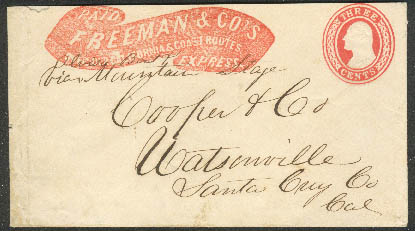 PAID
FREEMAN & CO'S
CALIFORNIA & COAST ROUTES
EXPRESS
THREE
CENTS
via Mountain Stage
Cooper & Co
Watsonville
Santa Cruz Co
Cal